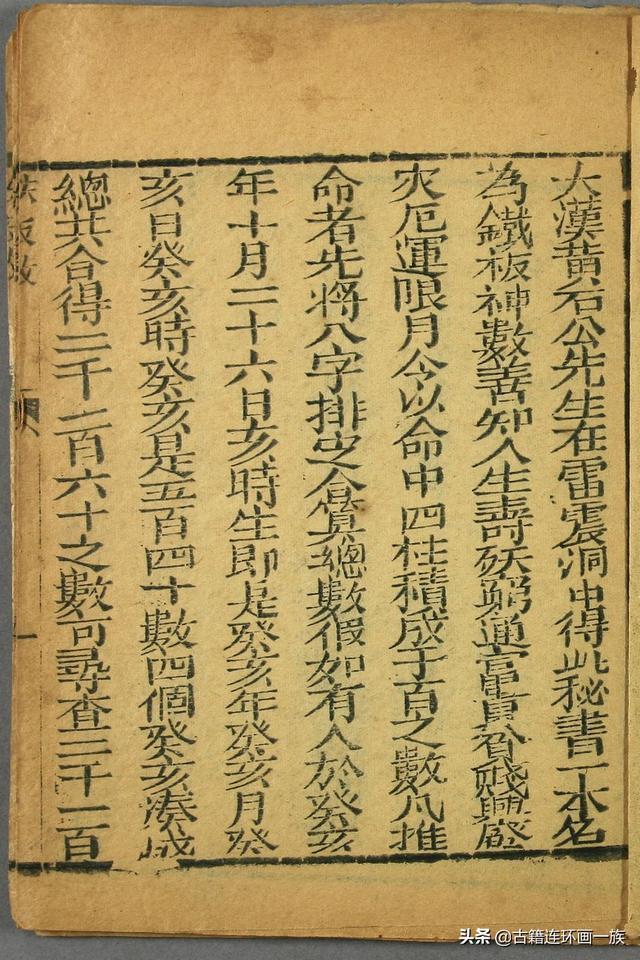 大漢黄石公先生在雷震洞中得此秘書一本名
為鐵板神數善知人生壽殀窮通富貴貧賤興廢
灾厄運限月令以命中四柱積成于百之數凡推
命者先將八字排定合算總數假如有人於癸亥
年十月二十六日亥時生即是癸亥年癸亥月癸
亥日癸亥時癸亥是五百四十數四個癸亥湊成
總共合得二千一百六十之數可尋查二千一百
鉄板數
一
头条 @古籍连环画一族